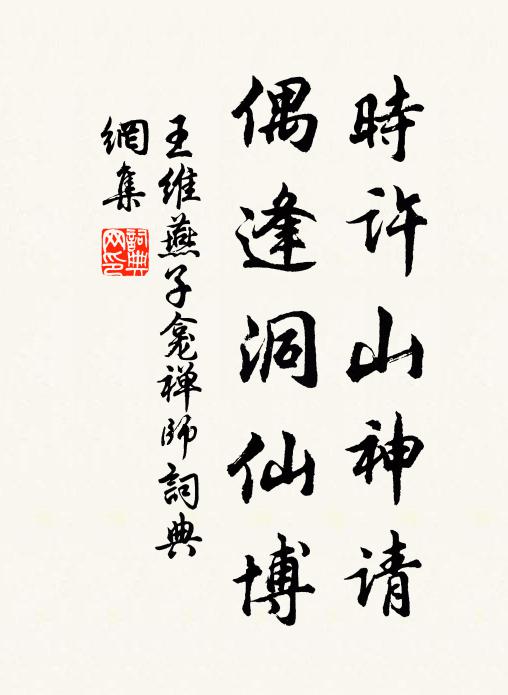 時许山神请
偶逢洞仙博
王维燕子龛禅师詞典
網集
詞典
网印